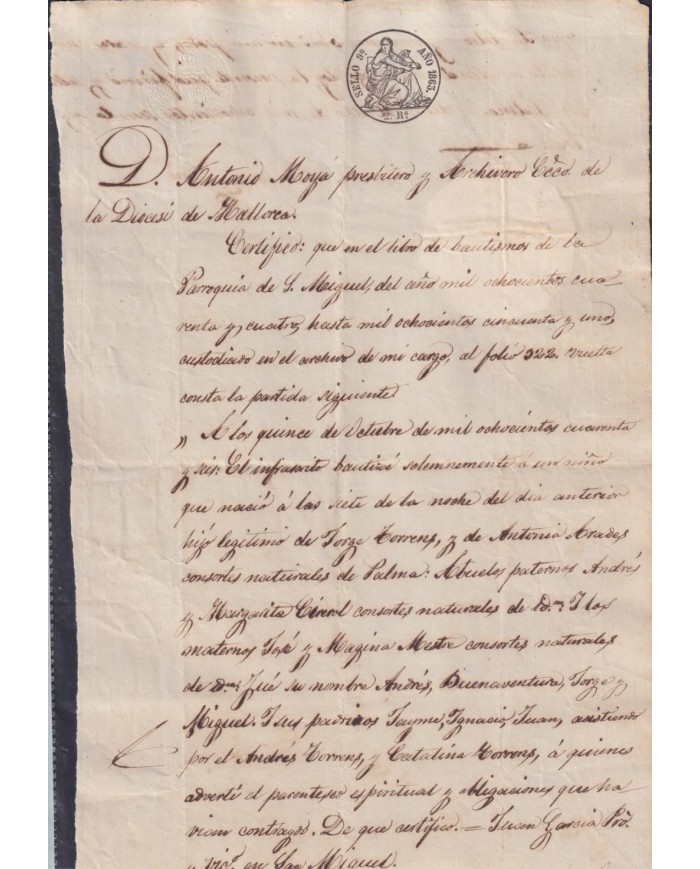 SELLO 9º AÑO 1863.
Rs
D. Antonio Moyá presbítero y Archivero Ecco. de
la Diocesi de Mallorca.
Certifico: que en el libro de bautismos de la
Parroquia de S. Miguel, del año mil ochocientos cua
renta y cuatro, hasta mil ochocientos cincuenta y uno,
custodiado en el archivo de mi cargo, al folio 322 vuelta
consta la partida siguiente
„ A los quince de Octubre de mil ochocientos cuarenta
y seis: El infrascrito bauticé solemnemente á un niño
que nació á las siete de la noche del dia anterior
hijo legitimo de Jorge Torrens, y de Antonia Arades
consortes naturales de Palma: Abuelos paternos Andrés
y Margarita Cirerol consortes naturales de id.: I los
maternos José y Magina Mestre consortes naturales
de id.: Fué su nombre Andrés, Buenaventura, Jorge y
Miguel. I sus padrinos Jayme, Ignacio, Juan, asistiendo
por el Andrés Torrens, y Catalina Torrens, á quienes
advertí el parentesco espiritual y obligaciones que ha
vian contraydo. De que certifico. = Juan Garcia Pro.
y Vico. en San Miguel.